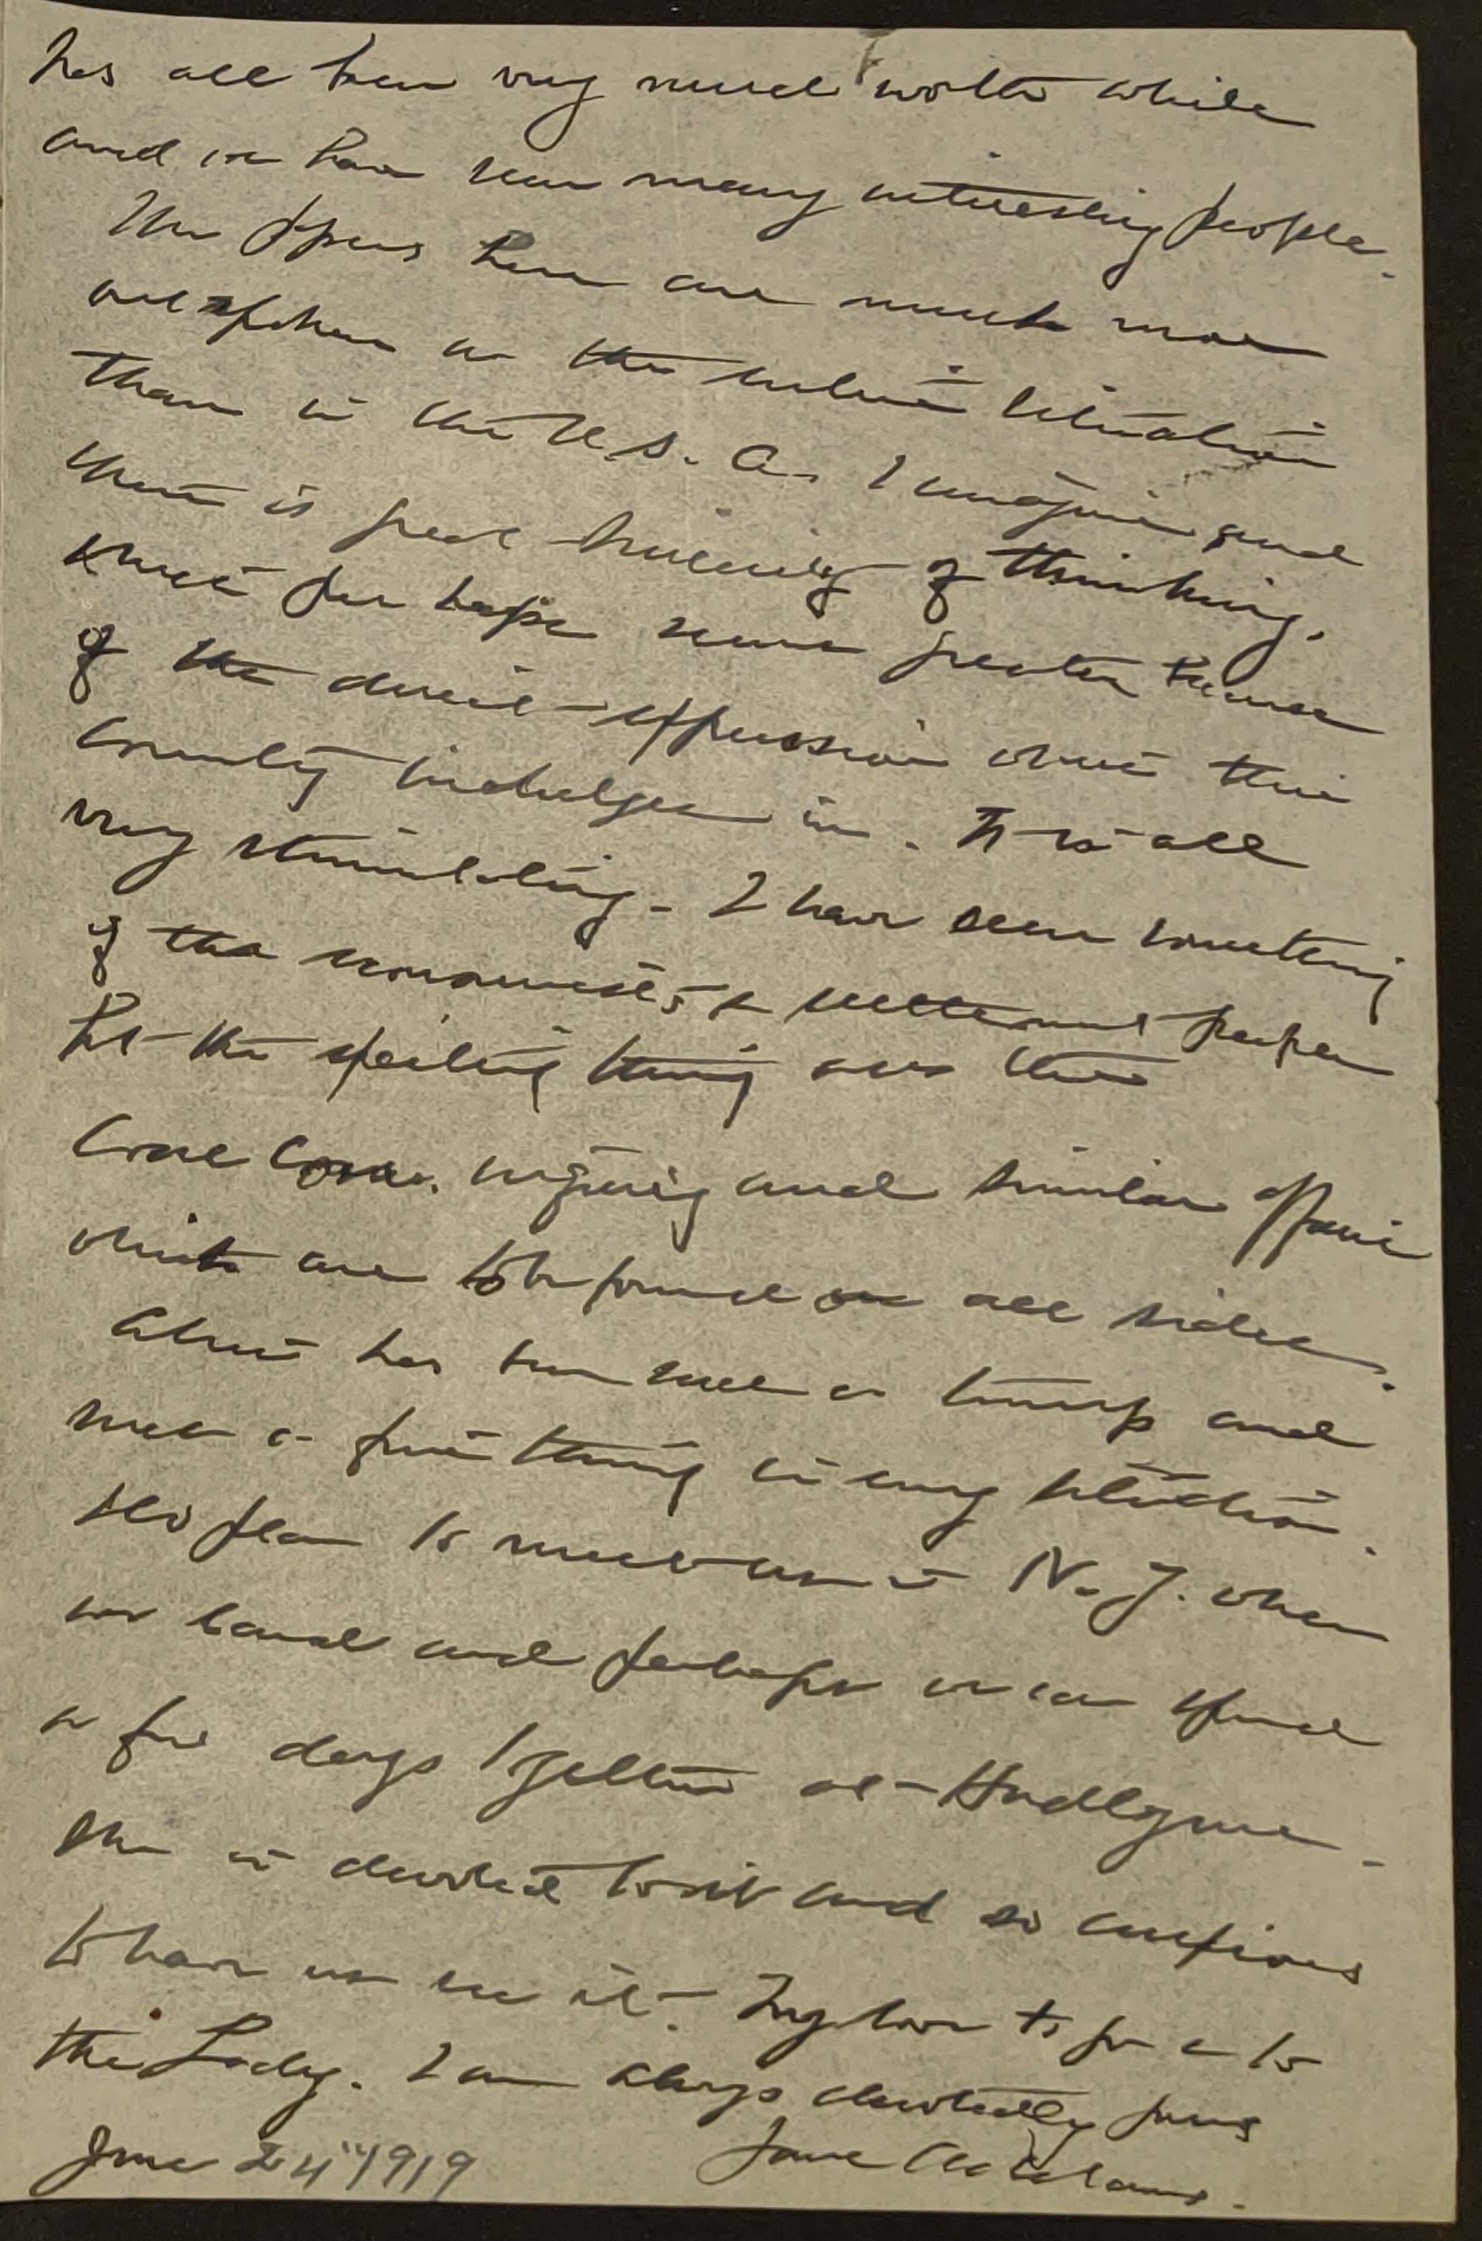 has all been very much worth while
and we have seen many interesting people.
The papers here are much more
outspoken on the whole situation
than in the U. S. A. I imagine and
there is great sincerity of thinking,
which perhaps never greater because
of the direct expression which this
country indulges in. It is all
very stimulating. I have seen something
of the economists & settlement people
but the exciting thing was the
Coal Com. inquiry and similar affairs
which are to be found on all sides.
Alice has been such a trump and
such a fine thing in every situation.
plan to meet us in N. Y. when
we land and perhaps we can spend
a few days together at Hadlyme.
She is devoted to it and so anxious
to have us see it. My love to you & to
the Lady. I am always devotedly yours
June 24" 1919 Jane Addams.